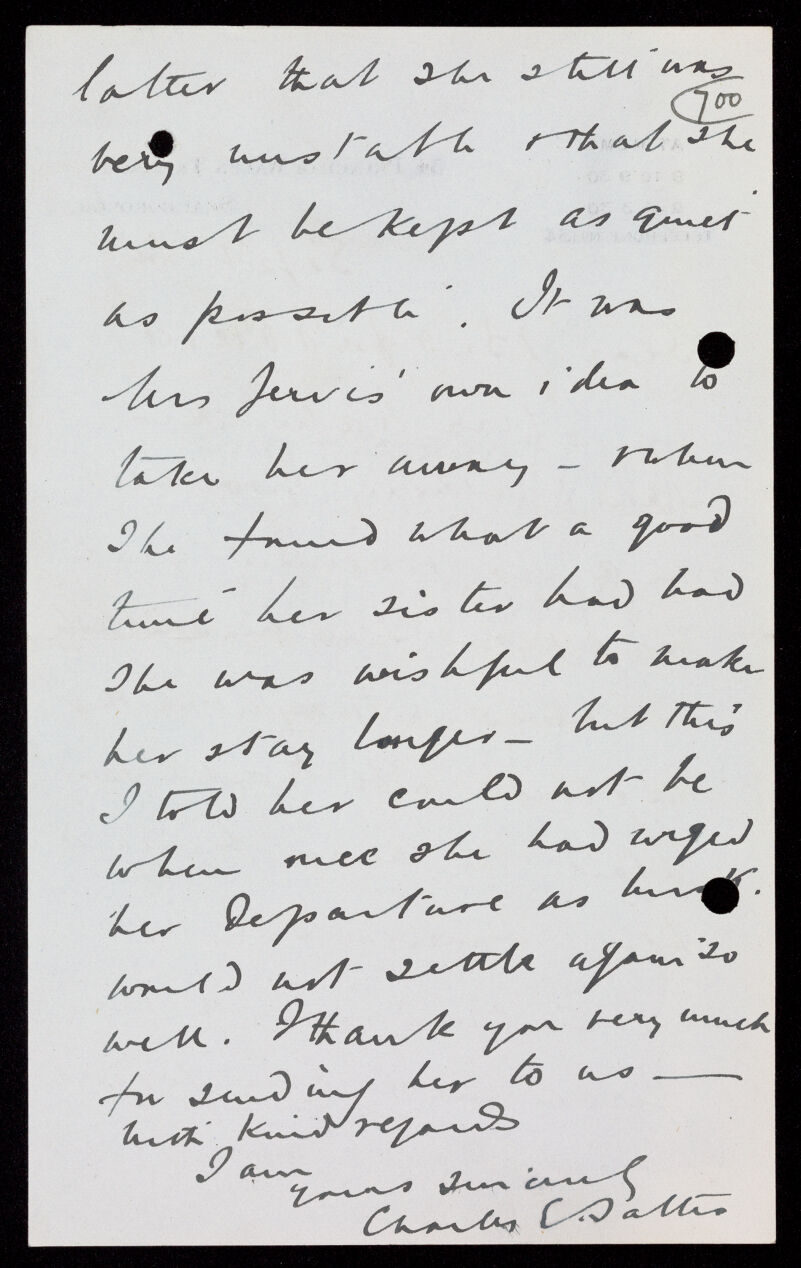 latter that she still was
700
very unstable & that she
must be kept as quiet
as possible. It was
Mrs Jervis' own idea to
take her away – & when
she found what a good
time her sister had had
she was wishful to make
her stay longer – but this
I told her could not be
when once she had urged
her departure as
would not settle again so
well. I thank you very much
for sending her to us —
with kind regards
I am
yours sincerely
Charles C.